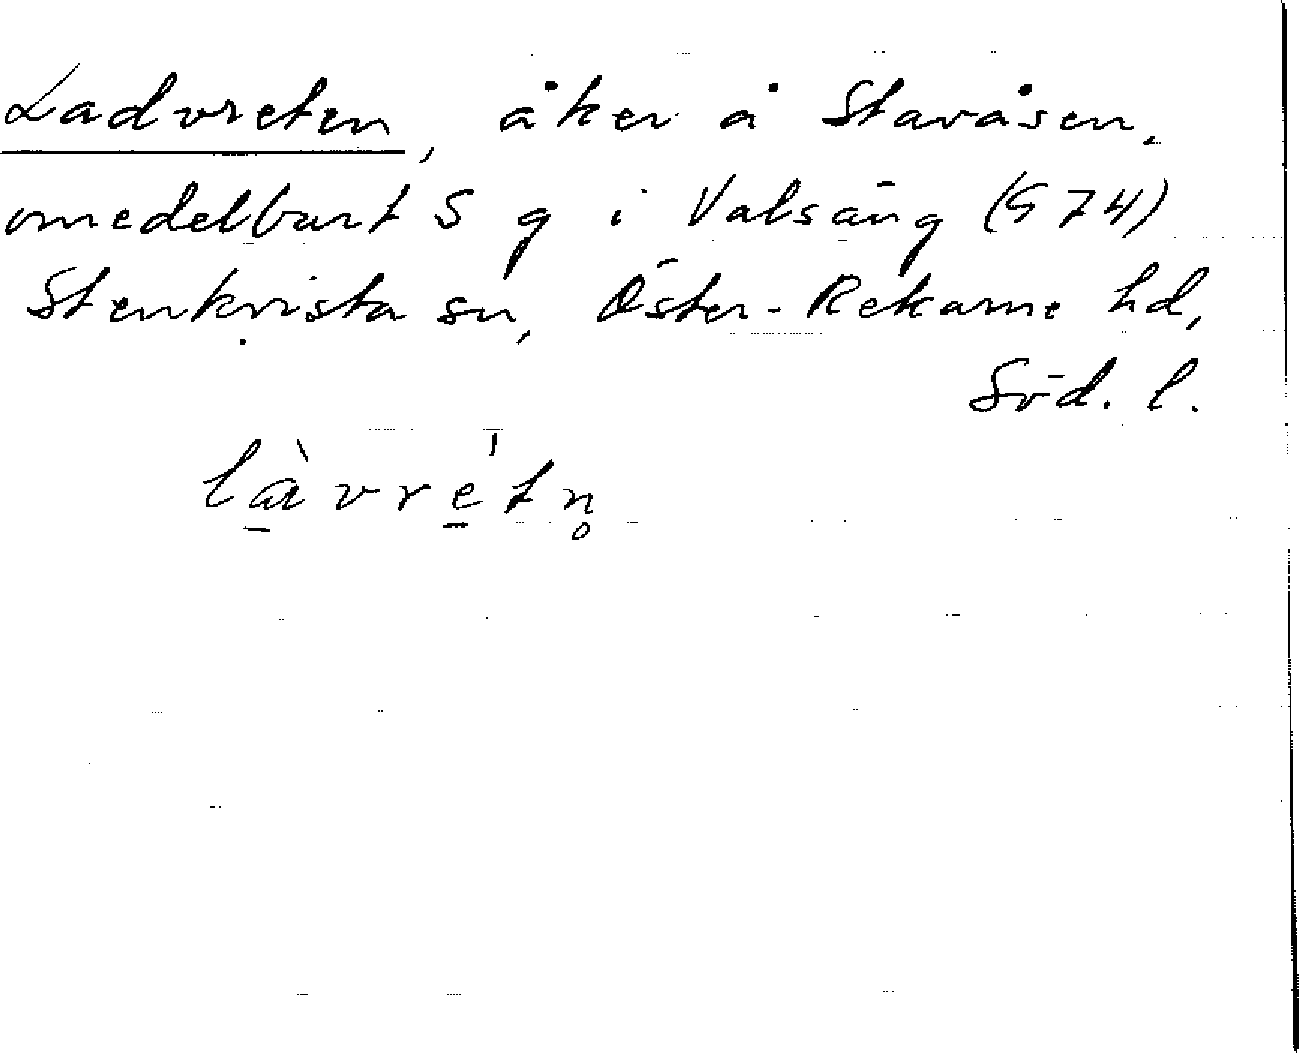 Ladvreten, åker å Stavåsen.
omedelbart S g i Valsäng (S 74)
Stenkvista sn, Öster-Rekarne hd,
Söd. l.
là̱vre̱̍tn̥